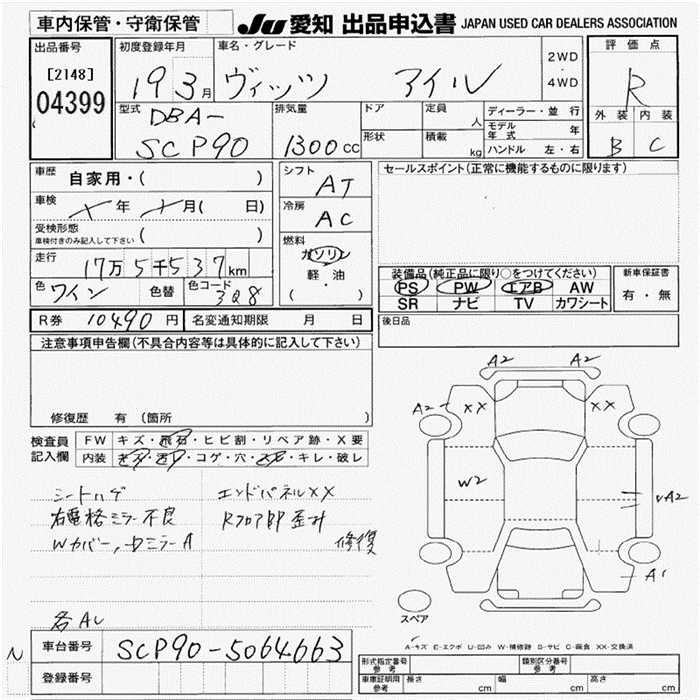 車内保管・守衛保管
JU 愛知 出品申込書 JAPAN USED CAR DEALERS ASSOCIATION
出品番号
[2148]
04399
初度登録年月
19 3月
車名・グレード
ヴィッツ アイル
2WD
・
4WD
評価点
R
外装 内装
B C
型式
DBA-
SCP90
排気量
1300cc
ドア
形状
定員 人
積載 kg
ディーラー・並行
モデル年式 年
ハンドル 左・右
車歴 自家用・( )
車検 年 月( 日)
受検形態
車検付きのみ記入して下さい ( )
走行 17万5千537km
色 ワイン 色替 色コード 3Q8
シフト AT
冷房 AC
燃料
ガソリン
軽・油
( ・ )
セールスポイント(正常に機能するものに限ります)
装備品(純正品に限り○をつけてください)
PS PW エアB AW
SR ナビ TV カワシート
新車保証書
有・無
後日品
R券 10490円 名変通知期限 月 日
注意事項申告欄(不具合内容等は具体的に記入して下さい)
修復歴 有 (箇所 )
検査員
記入欄
FW キズ・飛石・ヒビ割・リペア跡・X要
内装 キズ・汚れ・コゲ・穴・スレ・キレ・破レ
シートハゲ エンドパネルXX
右電格ミラー不良 Rフロア部歪み
Wカバー,中ミラーA 修復
各AU
A2 A2
A2 XX XX
W2
A2
A1
スペア
A-キズ E-エクボ U-凹み W-補修跡 S-サビ C-腐食 XX-交換済
N
車台番号 SCP90-5064663
登録番号
形式指定番号
参考
類別区分番号
参考
車庫証明用
参考
長さ cm 幅 cm 高さ cm